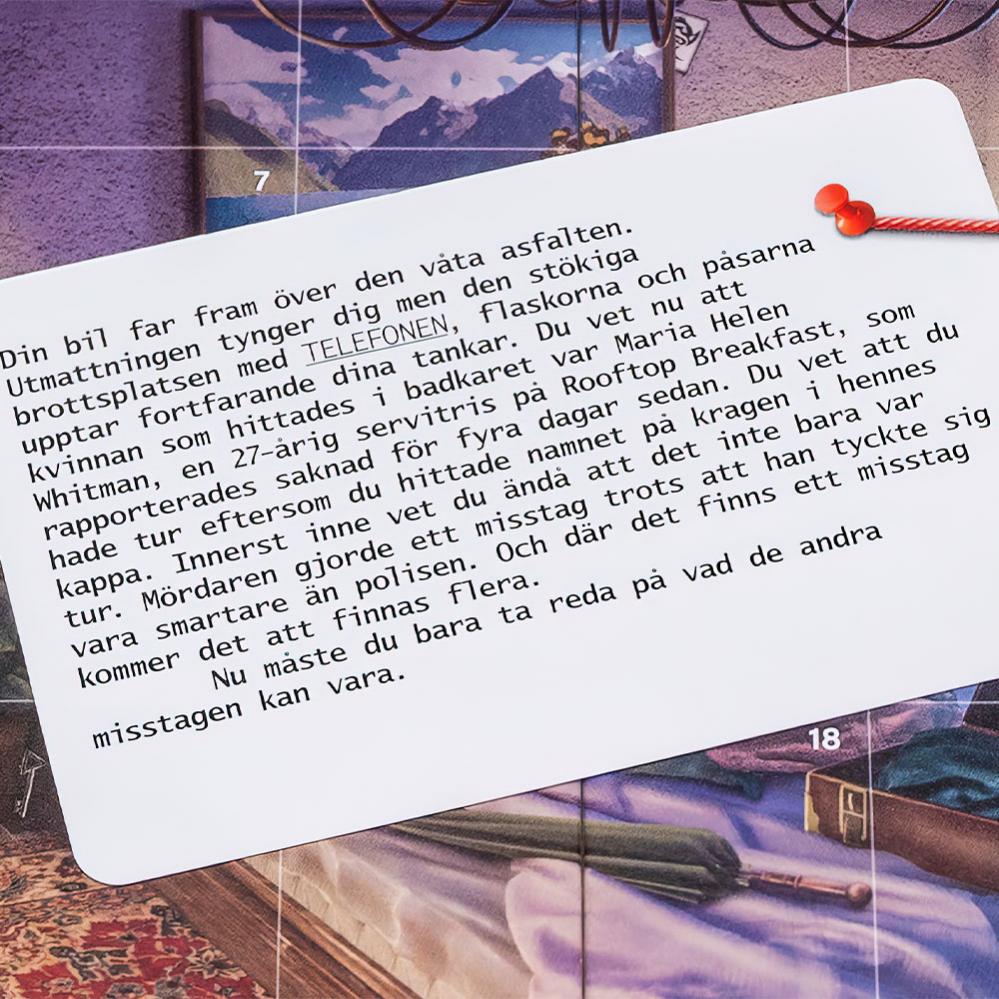 7
Din bil far fram över den våta asfalten.
Utmattningen tynger dig men den stökiga
brottsplatsen med TELEFONEN, flaskorna och påsarna
upptar fortfarande dina tankar. Du vet nu att
kvinnan som hittades i badkaret var Maria Helen
Whitman, en 27-årig servitris på Rooftop Breakfast, som
rapporterades saknad för fyra dagar sedan. Du vet att du
hade tur eftersom du hittade namnet på kragen i hennes
kappa. Innerst inne vet du ändå att det inte bara var
tur. Mördaren gjorde ett misstag trots att han tyckte sig
vara smartare än polisen. Och där det finns ett misstag
kommer det att finnas flera.
Nu måste du bara ta reda på vad de andra
misstagen kan vara.
18